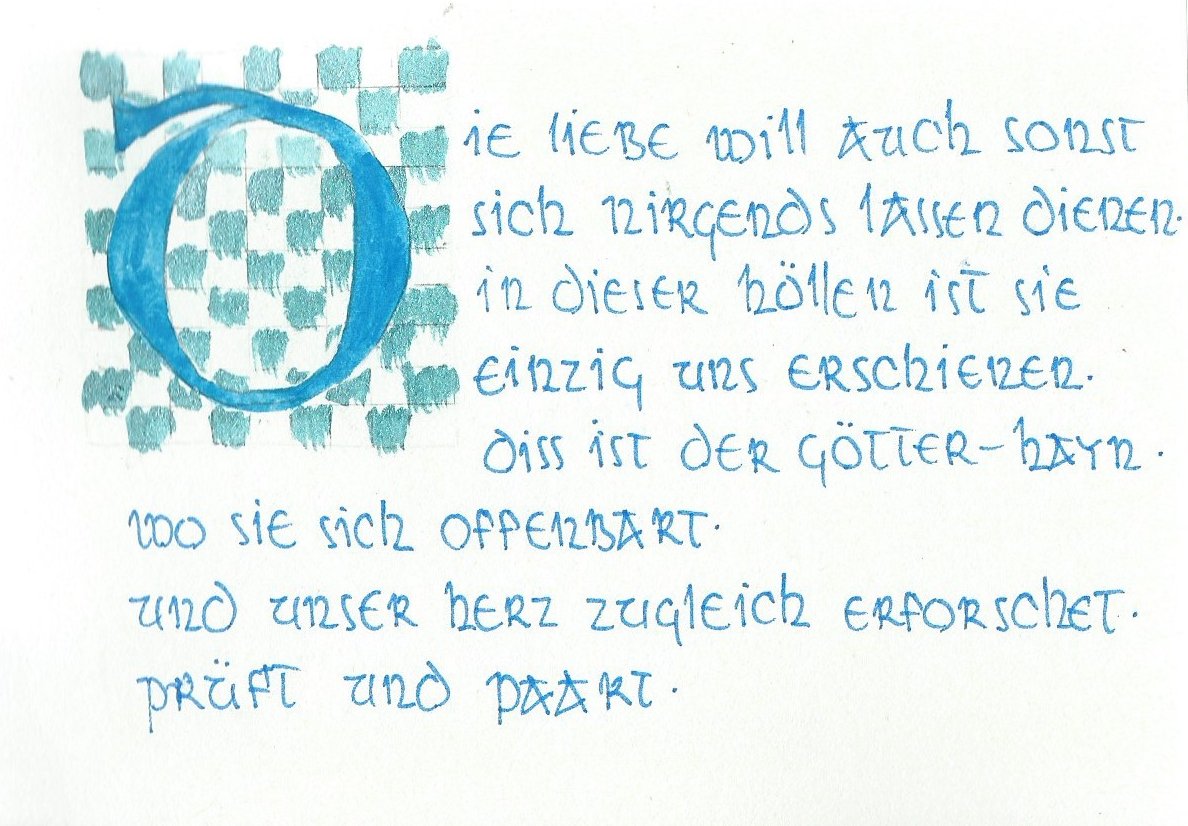 Die liebe will auch sonst
sich nirgends lassen dienen.
in dieser höllen ist sie
einzig uns erschienen.
diss ist der götter-hayn.
wo sie sich offenbart.
und unser herz zugleich erforschet.
prüft und paart.